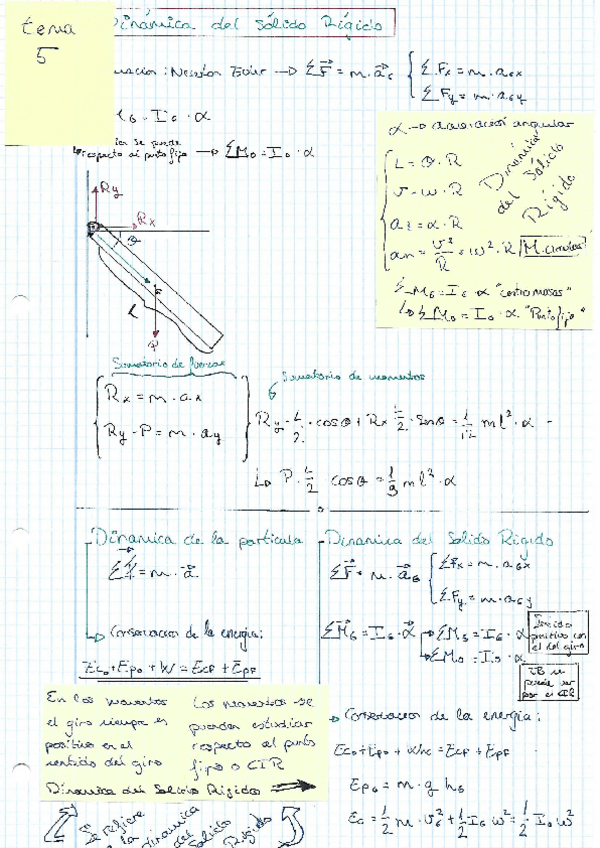 tema
5
Dinámica del Sólido Rígido
Newton Euler → ΣF = m·a_G { ΣFx = m·a_Gx
ΣFy = m·a_Gy
M_G = I_G·α
se puede
respecto al punto fijo → ΣM_O = I_O·α
α → aceleración angular
L = θ·R
v = w·R
a_t = α·R
a_n = v²/R = w²·R M. circular
Dinámica
del Sólido
Rígido
ΣM_G = I_G·α "centro masas"
↳ ΣM_O = I_O·α "Punto fijo"
Ry
Rx
θ
G
L
P
Sumatorio de fuerzas
Sumatorio de momentos
Rx = m·ax
Ry - P = m·ay
Ry·L/2·cosθ + Rx·L/2·senθ = 1/12 ml²·α
↳ P·L/2 cosθ = 1/3 ml²·α
Dinámica de la partícula
ΣF = m·a
↳ Conservacion de la energía:
Ec₀+Ep₀+W = EcF+EpF
Dinamica del Solido Rigido
ΣF = m·a_G { ΣFx = m·a_Gx
ΣFy = m·a_Gy
ΣM_G = I_G·α → ΣM_G = I_G·α
→ ΣM_O = I_O·α
Sentido
positivo con
el del giro
puede ser
por el CIR
En los momentos
el giro siempre es
positivo en el
sentido del giro
Los momentos se
pueden estudiar
respecto al punto
fijo o CIR
Dinámica del Sólido Rígido ⟹
→ Conservacion de la energía:
Ec₀+Ep₀+Wnc = EcF+EpF
Ep_G = m·g h_G
Ec = 1/2 m·v_G² + 1/2 I_G w² = 1/2 I_O w²
Se refiere
a la dinamica
del
Sólido
Rígido